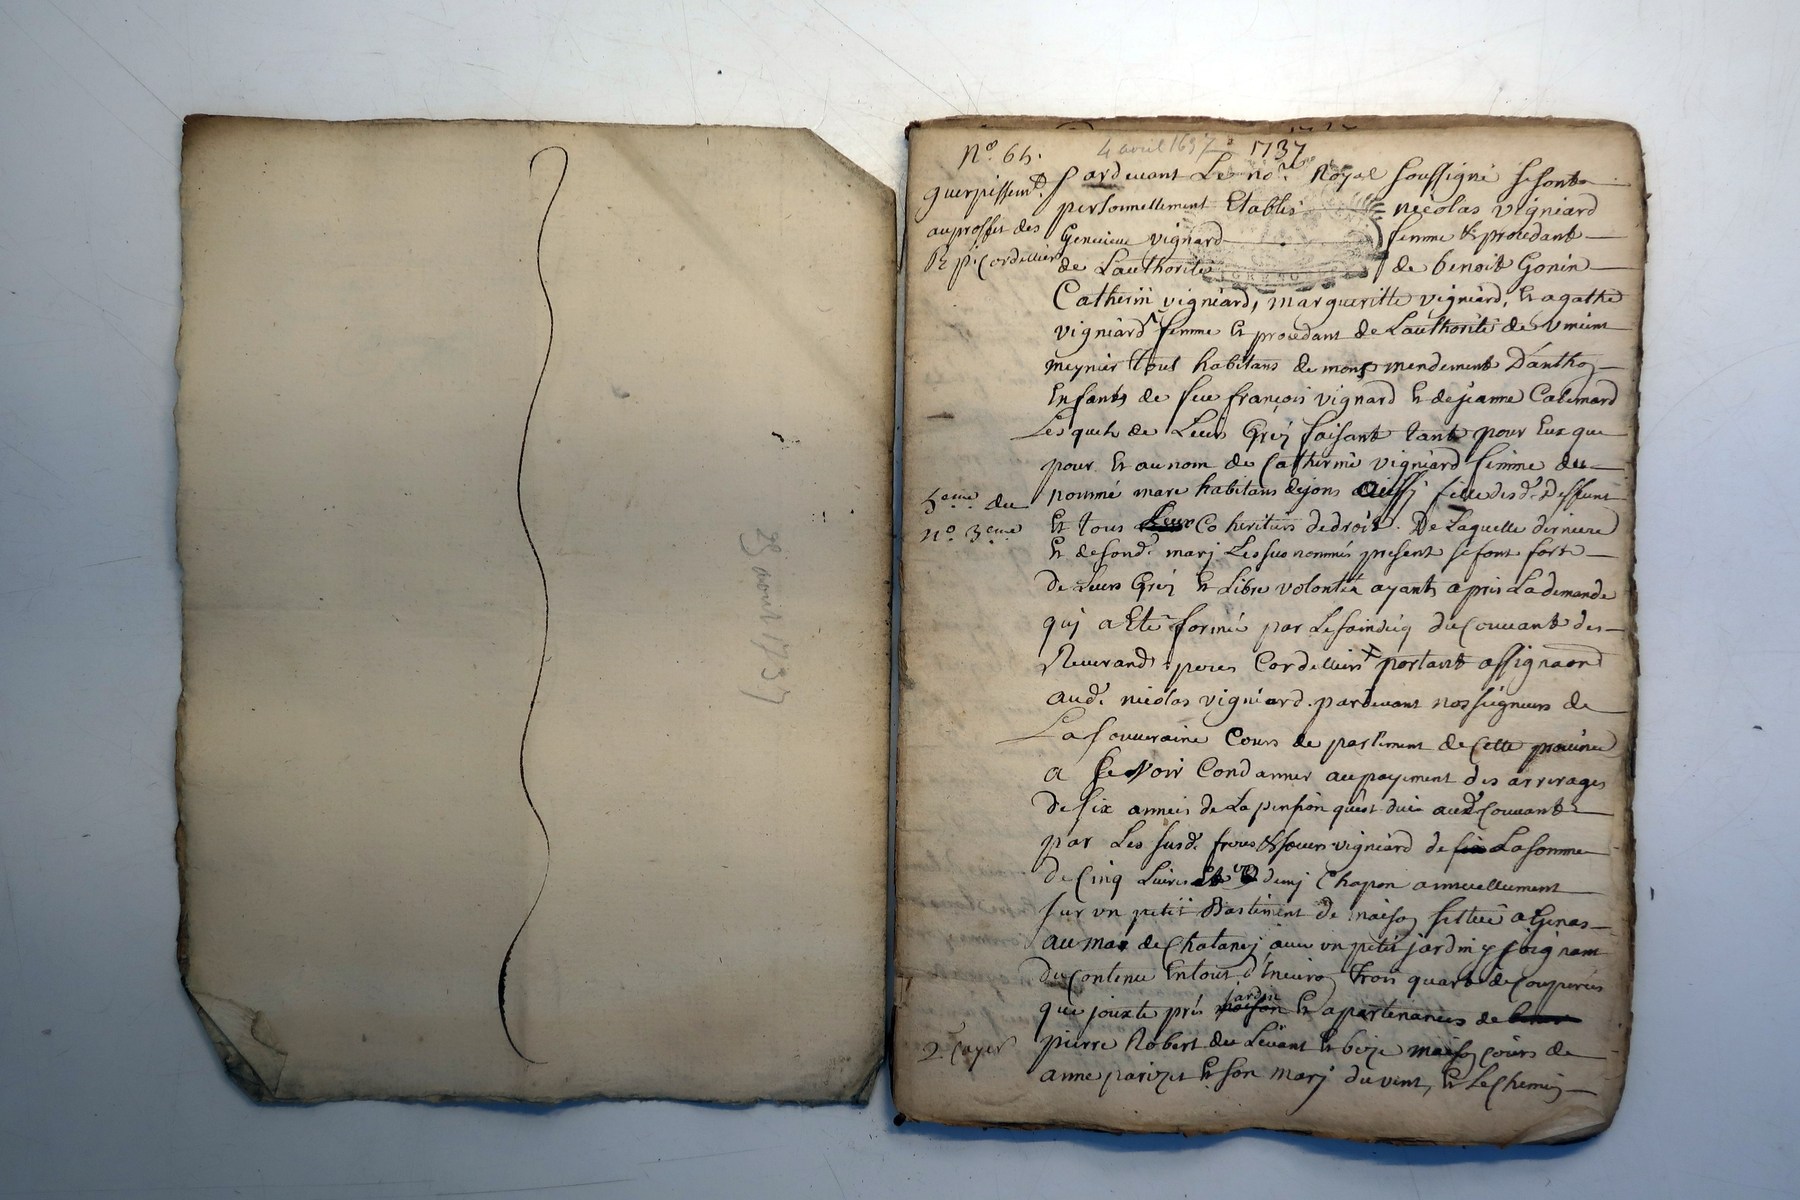 25 avril 1737
4 avril 1637 1737
N.º 64.
guerpissemt.
au proffit des
RR pp. Cordelliers
Pardevant Le no.re Royal soussigné se sont
personnellement Etablis nicolas vigniard
Genevieve vignard femme & procedant
de Lauthorité de benoit Gonin
Catherin vigniard, margueritte vigniard, et agathe
vigniard femme et procedant de Lauthorité de vincent
meynier tous habitans de mons mendement Danthoz
Enfants de feu françois vignard et de jeanne Calemard
Lesquels de Leurs Gréz faisant tant pour Eux que
pour et au nom de Catherine vigniard femme du
nommé mare habitans dejons aussy fille desd. deffunt
5eme du
n.º 3eme
Et tous Leur Co heritiers de droit. De Laquelle derniere
Et de sond. marj Les sus nommés present se font fort
De Leurs Gréz et Libre volontéz ayants apris La demande
quj a Eté formée par Le saindicq du Couvant des
Reverands peres Cordelliers portant assignaon
aud. nicolas vigniard pardevant nosseigneurs de
La souveraine Cours de parlement de Cette province
a se voir Condamner au payement des arrerages
De six années de La pension quest duë aud. Couvant
par Les susd. freres & soeurs vigniard de six La somme
De Cinq Livres et un demj Chapon annuellement
sur un petit Bastiment de maison sittué a Genas
au mas de Chatanej avec un petit jardin y joignant
Du Contenu En tout d'Environ trois quart de Couperées
qui jouxte prés maison jardin et apartenances de Leur
pierre Robert du Levant et bize maison Cours de
2. Cayer
anne parizet et son marj du vent, et Le Chemin